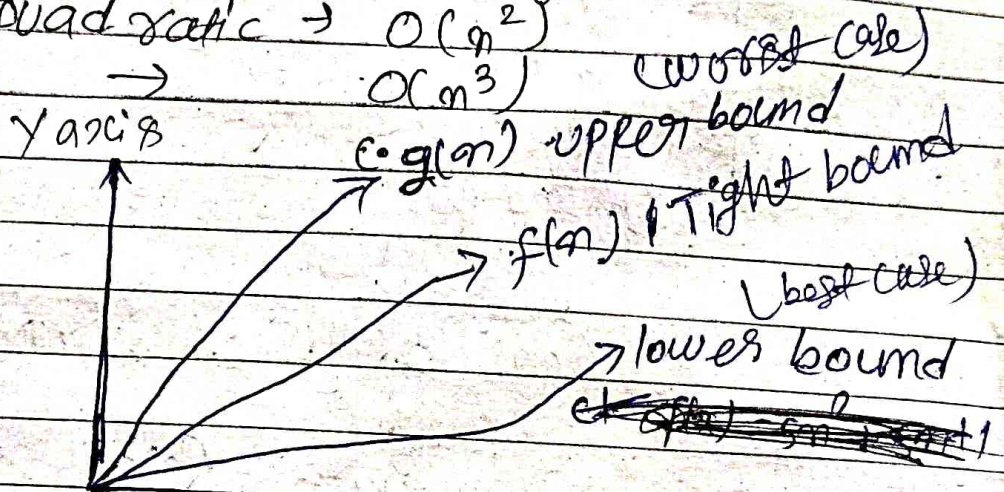 Quadratic → O(n²)
→ O(n³)
(worst case)
Y axis
c.g(n) upper bound
f(n) Tight bound
(best case)
lower bound